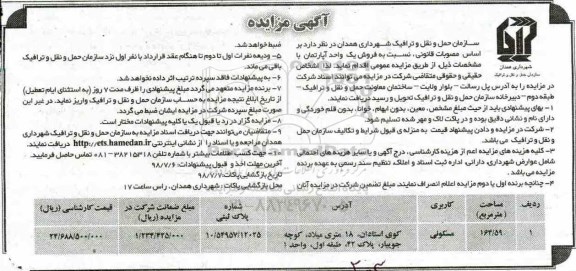 آگهی مزایده
شهرداری همدان
سازمان حمل و نقل و ترافیک
سازمان حمل و نقل و ترافیک شهرداری همدان در نظر دارد بر
اساس مصوبات قانونی، نسبت به فروش یک واحد آپارتمان با
مشخصات ذیل، از طریق مزایده عمومی اقدام نماید. لذا اشخاص
حقیقی و حقوقی متقاضی شرکت در مزایده می توانند اسناد شرکت
در مزایده را به آدرس پل رسالت - بلوار ولایت - ساختمان معاونت حمل و نقل و ترافیک -
طبقه دوم - دبیرخانه سازمان حمل و نقل و ترافیک تحویل و رسید دریافت نمایند.
۱- بهای پیشنهادی باید از حیث مبلغ مشخص، معین، بدون ابهام، خوانا، بدون قلم خوردگی و
دارای نام و نشانی دقیق بوده و در پاکت لاک و مهر شده تسلیم شود.
۲- شرکت در مزایده و دادن پیشنهاد قیمت به منزله ی قبول شرایط و تکالیف سازمان حمل
و نقل و ترافیک می باشد.
۳- کلیه هزینه های مزایده اعم از هزینه کارشناسی، درج آگهی و یا سایر هزینه های احتمالی
شامل عوارض شهرداری، دارائی، اداره ثبت اسناد و املاک تنظیم سند رسمی به عهده برنده
مزایده می باشد.
۴- چنانچه برنده اول یا دوم مزایده اعلام انصراف نمایند، مبلغ تضمین شرکت در مزایده آنان
ضبط خواهد شد.
۵- ودیعه نفرات اول تا دوم تا هنگام عقد قرارداد با نفر اول نزد سازمان حمل و نقل و ترافیک
باقی می ماند.
۶- به پیشنهادات فاقد سپرده ترتیب اثر داده نخواهد شد.
۷- برنده مزایده متعهد می گردد مبلغ پیشنهادی را ظرف مدت ۷ روز (به استثنای ایام تعطیل)
از تاریخ ابلاغ نتیجه مزایده به حساب سازمان حمل و نقل و ترافیک واریز نماید. در غیر این
صورت مبلغ سپرده شرکت در مزایده ایشان ضبط می گردد.
۸- مزایده گزار در رد یا قبول یک یا کلیه پیشنهادات مختار است.
۹- متقاضیان می توانند جهت دریافت اسناد مزایده به سازمان حمل و نقل و ترافیک شهرداری
همدان مراجعه و یا اسناد را از نشانی اینترنتی http://ets.hamedan.ir دریافت نمایند.
جهت کسب اطلاعات بیشتر با شماره تلفن ۳۸۲۱۵۳۱۸ - ۰۸۱ تماس حاصل فرمایید.
آخرین مهلت اخذ و قبول پیشنهادات: ۹۸/۷/۶
تاریخ بازگشایی پاکات: ۹۸/۷/۷
محل بازگشایی پاکات: شهرداری همدان. راس ساعت ۱۷
ردیف مساحت (مترمربع) کاربری آدرس شماره پلاک ثبتی مبلغ ضمانت شرکت در مزایده (ریال) قیمت کارشناسی (ریال)
۱ ۱۶۴/۵۹ مسکونی کوی استادان، ۱۸ متری میلاد، کوچه جویبار، پلاک ۴۲، طبقه اول، واحد ۱ ۱۰/۵۴۹۵۷/۱۲۰۳۵ ۱/۲۳۴/۴۲۵/۰۰۰ ۲۴/۶۸۸/۵۰۰/۰۰۰